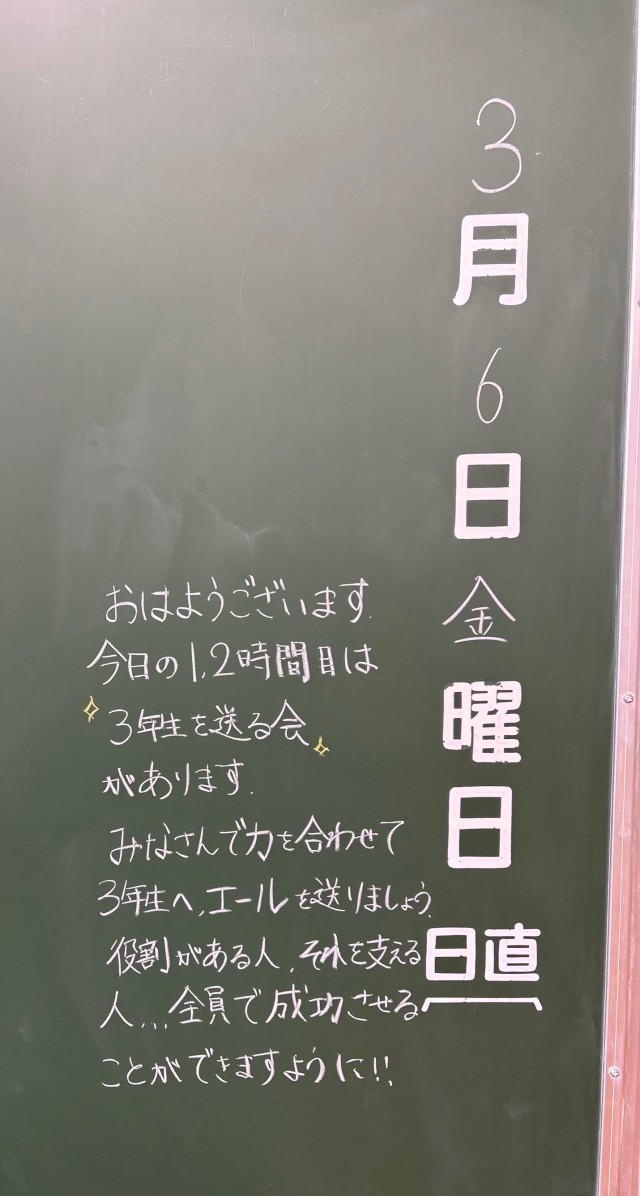 3月6日金曜日
日直
おはようございます.
今日の1,2時間目は
3年生を送る会
があります.
みなさんで力を合わせて
3年生へ,エールを送りましょう.
役割がある人,それを支える
人...全員で成功させる
ことができますように!!